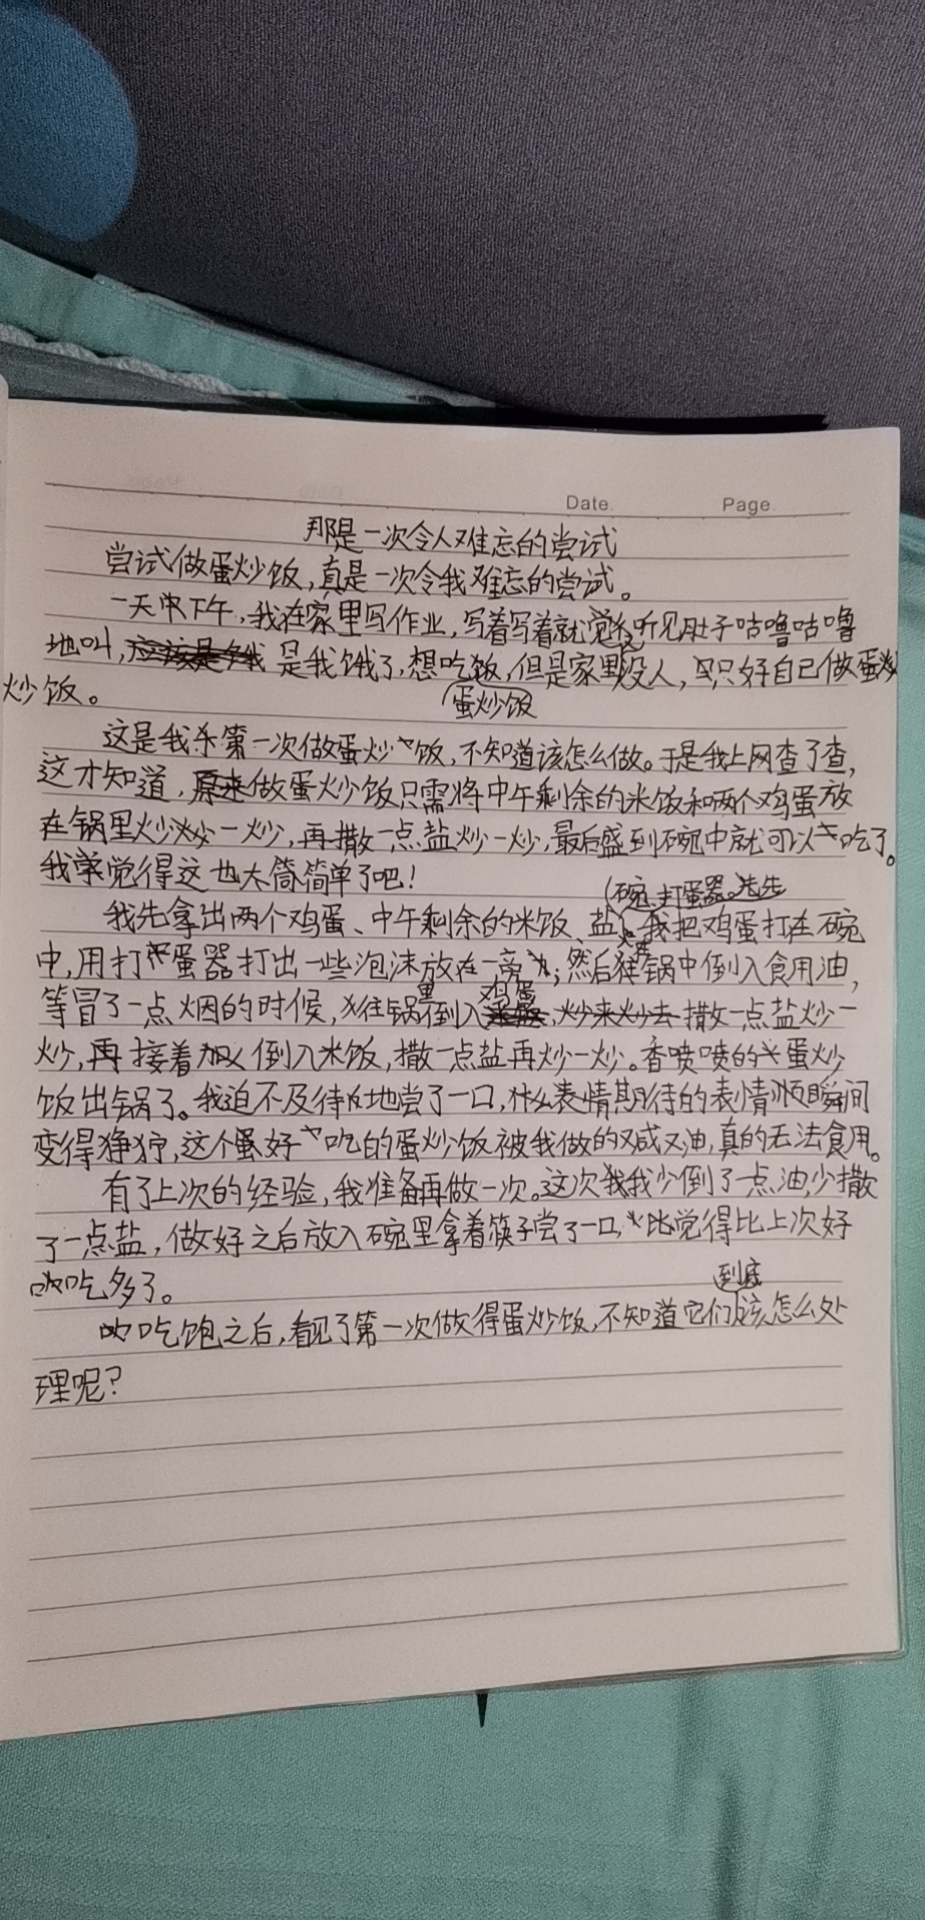 Date.
Page.
那是一次令人难忘的尝试
尝试做蛋炒饭，真是一次令我难忘的尝试。
一天下午，我在家里写作业，写着写着就听见肚子咕噜咕噜
地叫，是我饿了，想吃蛋炒饭，但是家里没人，只好自己做蛋
炒饭。
这是我第一次做蛋炒饭，不知道该怎么做。于是我上网查了查，
这才知道，原来做蛋炒饭只需将中午剩余的米饭和两个鸡蛋放
在锅里炒一炒，再撒一点盐炒一炒，最后盛到碗中就可以吃了。
我觉得这也太简单了吧！
我先拿出两个鸡蛋、中午剩余的米饭、盐、碗、打蛋器。先我把鸡蛋打在碗
中，用打蛋器打出一些泡沫放在一旁；然后往锅中倒入食用油，
等冒了一点烟的时候，往锅里倒入鸡蛋，撒一点盐炒一
炒，再接着倒入米饭，撒一点盐再炒一炒。香喷喷的蛋炒
饭出锅了。我迫不及待地尝了一口，期待的表情瞬间
变得狰狞，这个好吃的蛋炒饭被我做的又咸又油，真的无法食用。
有了上次的经验，我准备再做一次。这次我少倒了一点油，少撒
了一点盐，做好之后放入碗里拿着筷子尝了一口，觉得比上次好
吃多了。
吃饱之后，看见了第一次做得蛋炒饭，不知道它们到底该怎么处
理呢？